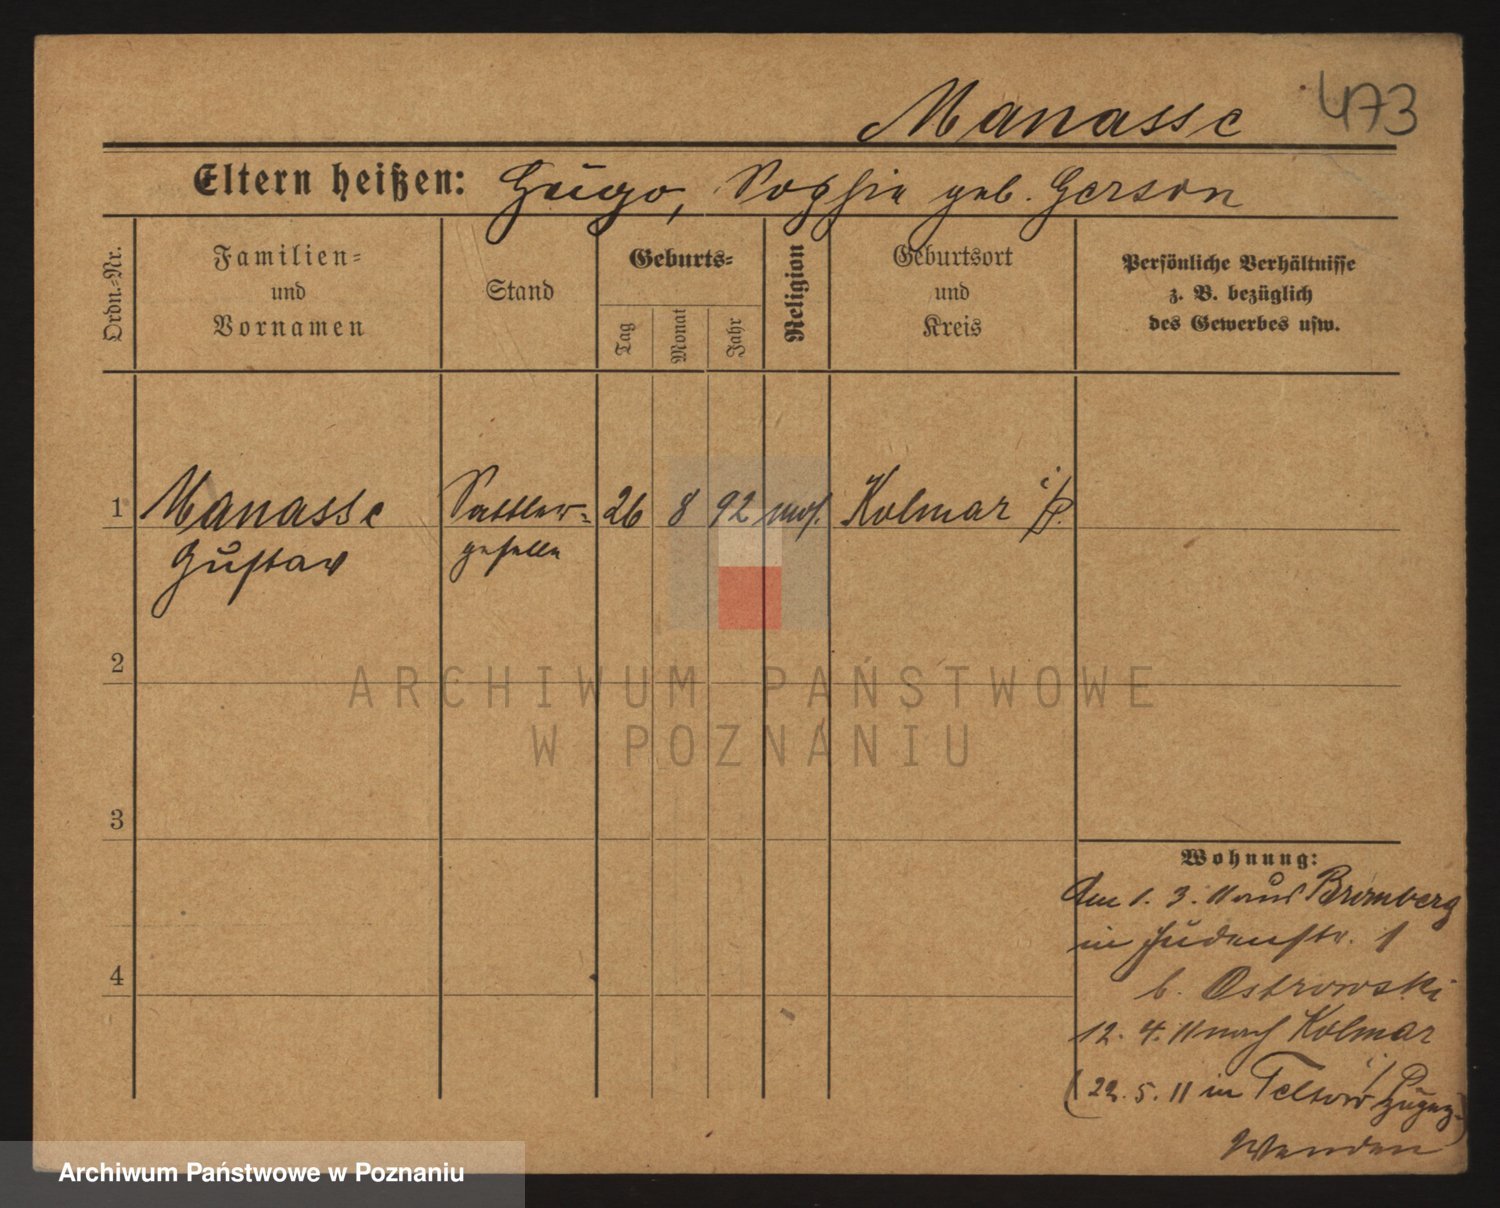 Manasse 473
Eltern heißen: Hugo, Sophie geb. Gerson
Ordn.-Nr.
Familien-
und
Vornamen
Stand
Geburts-
Tag
Monat
Jahr
Religion
Geburtsort
und
Kreis
Persönliche Verhältnisse
z. B. bezüglich
des Gewerbes usw.
1 Manasse Sattler- 26 8 92 mos. Kolmar i/P.
Gustav geselle
2
ARCHIWUM PAŃSTWOWE
W POZNANIU
3
4
Wohnung:
Am 1. 3. 11 aus Bromberg
in Judenstr. 1
b. Ostrowski
12. 4. 11 nach Kolmar
i/P
(22. 5. 11 in Teltow zugez.)
Wenden
Archiwum Państwowe w Poznaniu